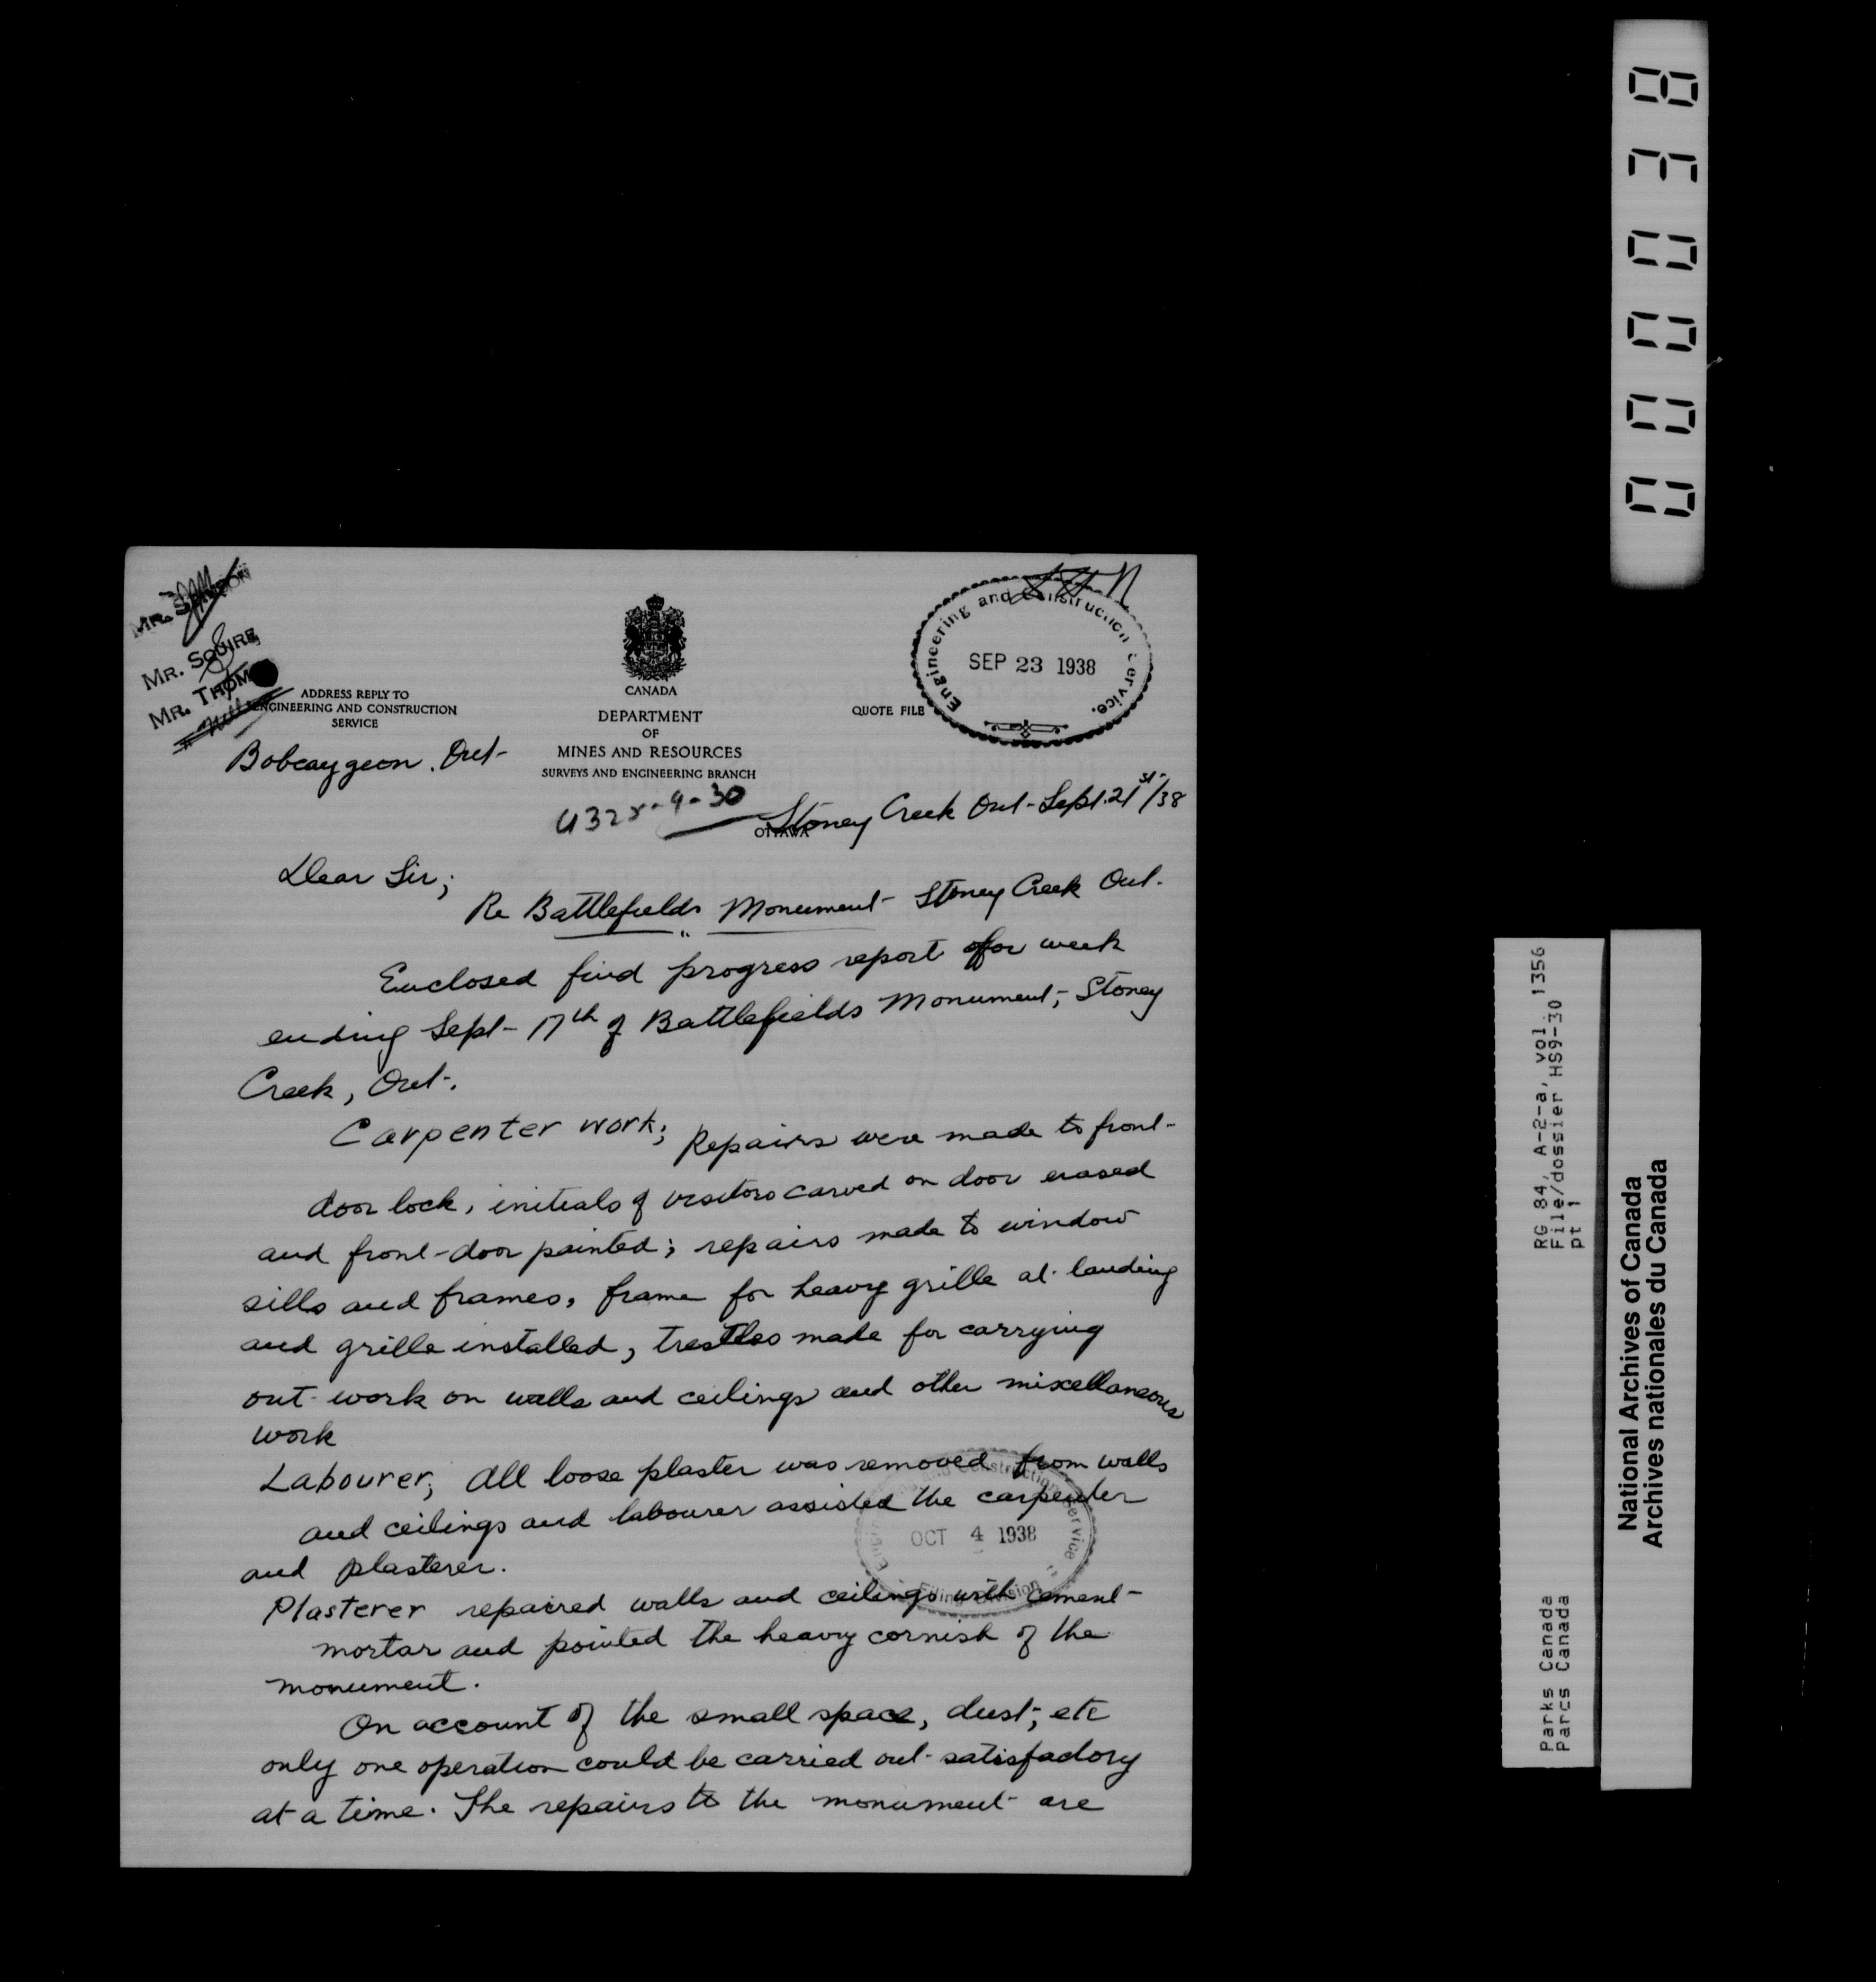 MR. SQUIRE
MR. THOM
ADDRESS REPLY TO
ENGINEERING AND CONSTRUCTION
SERVICE
Bobcaygeon. Ont-
CANADA
DEPARTMENT
OF
MINES AND RESOURCES
SURVEYS AND ENGINEERING BRANCH
OTTAWA
QUOTE FILE
Engineering and Construction Service.
SEP 23 1938
Stoney Creek Ont- Sept. 21st/38
Dear Sir;
Re Battlefields Monument- Stoney Creek Ont.
Enclosed find progress report for week
ending Sept- 17th of Battlefields Monument, Stoney
Creek, Ont-.
Carpenter work; Repairs were made to front-
door lock, initials of visitors carved on door erased
and front-door painted; repairs made to window
sills and frames, frame for heavy grille at landing
and grille installed, trestles made for carrying
out work on walls and ceilings and other miscellaneous
work
Labourer; All loose plaster was removed from walls
and ceilings and labourer assisted the carpenter
and plasterer.
Plasterer repaired walls and ceilings with cement-
mortar and pointed the heavy cornish of the
monument.
On account of the small space, dust, etc
only one operation could be carried out satisfactory
at a time. The repairs to the monument are
Engineering and Construction Service
OCT 4 1938
Filing Division
000038
RG 84, A-2-a, vol. 1356
File/dossier HS9-30
pt 1
Parks Canada
Parcs Canada
National Archives of Canada
Archives nationales du Canada